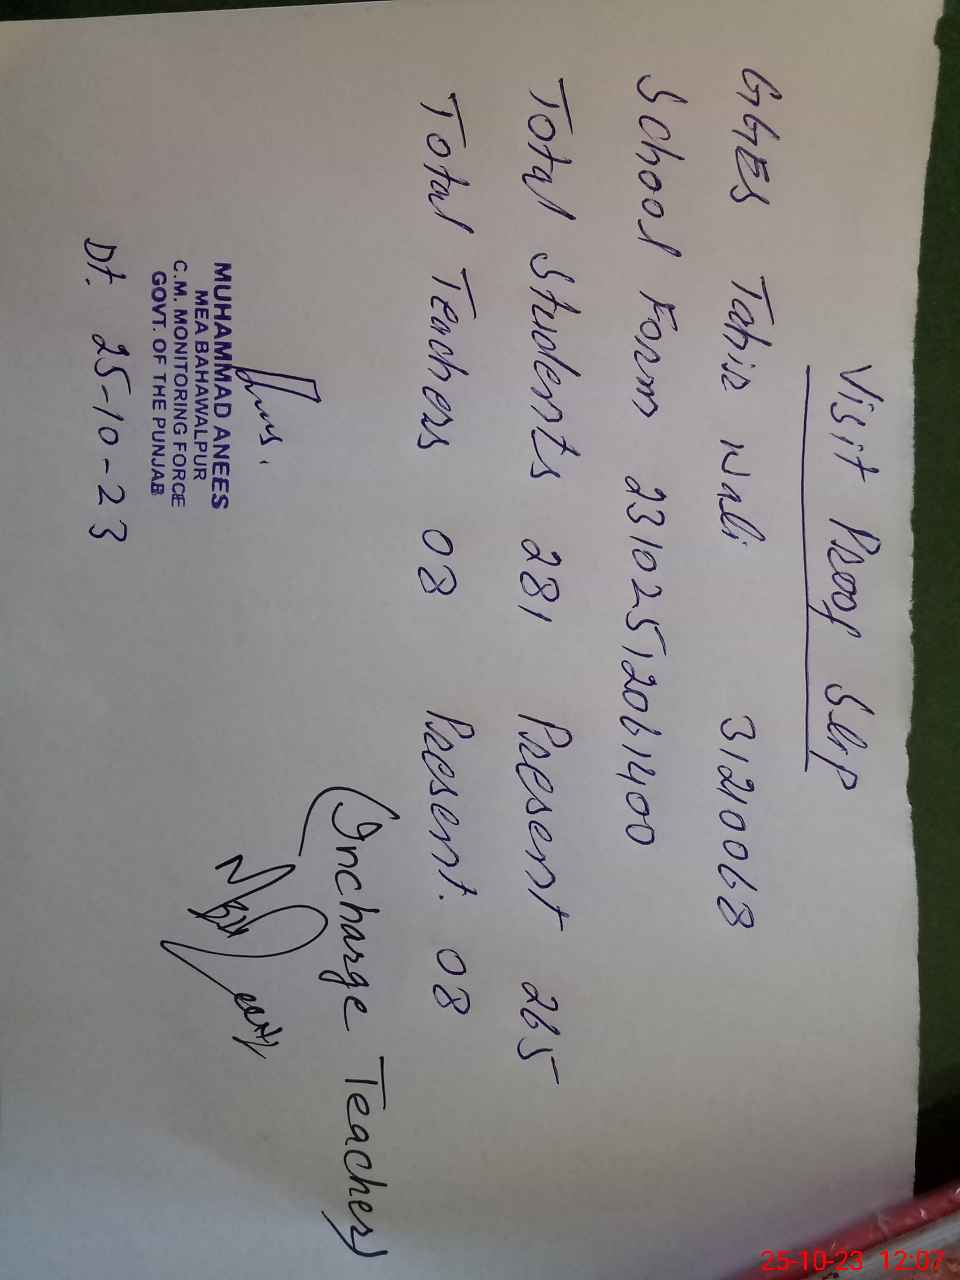 Visit Proof Slip
GGES Tahir Wali 31210068
School Form 23102512061400
Total Students 281 Present 265
Total Teachers 08 Present. 08
(Incharge Teacher)
MUHAMMAD ANEES
MEA BAHAWALPUR
C.M. MONITORING FORCE
GOVT. OF THE PUNJAB
Dt. 25-10-23
25-10-23 12:07